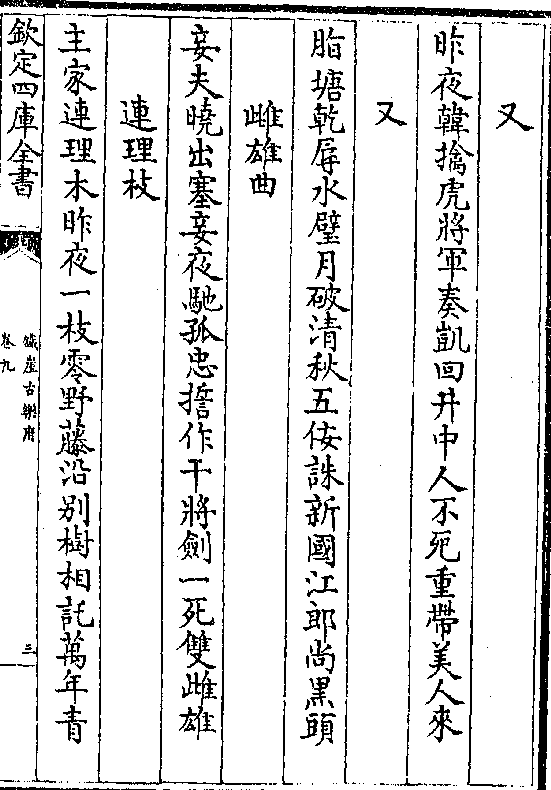 又
昨夜韓擒虎將軍奏凱回井中人不死重帶美人來
又
脂塘乾孱水璧月破清秋五佞誅新國江郎尚黑頭
雌雄曲
妾夫曉出塞妾夜馳孤忠擔作干將劍一死雙雌雄
連理枝
主家連理木昨夜一枝零野藤沿別樹相託萬年青
欽定四庫全書
鐵崖古樂府
卷九
三